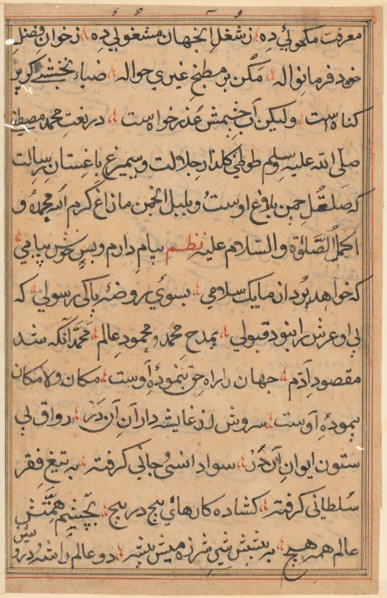 معرفت مکحولی ده زشغل آنجهان مشغولی ده زخوان فضل
خود فرما نواله مکن بر مطبخ غیری حواله ضیاء نخشبی گر پر
کناه است ولیکن آب چشمش عذر خواه است در نعت محمد مصطفی
صلی الله علیه وسلم طوطی کلذار جلالت و سیمرغ باغستان رسالت
که بلاغ اوست و بلبل انجمن مازاغ کرم الله محمده و
اکمل الصلوة والسلام علیه نظم پیام دارم و بس خوش پیامی
که خواهد برد از ما یک سلامی بسوی روضه پاکی رسولی که
بی او عرش را نبود قبولی بمدح محمد و محمود عالم محمد آنکه شد
مقصود آدم جهان را راه حق بنموده اوست مکان و لامکان
پیموده اوست سروش از غایشه داران آن در رواق بی
ستون ایوان آن سواد انسی و جانی گرفته بر تیغ فقر
سلطانی گرفته کشاده کارهای پیچ در پیچ بچشم همتش
عالم همه هیچ بر پیشش شیر شرزه میش پیشه دو عالم را شده